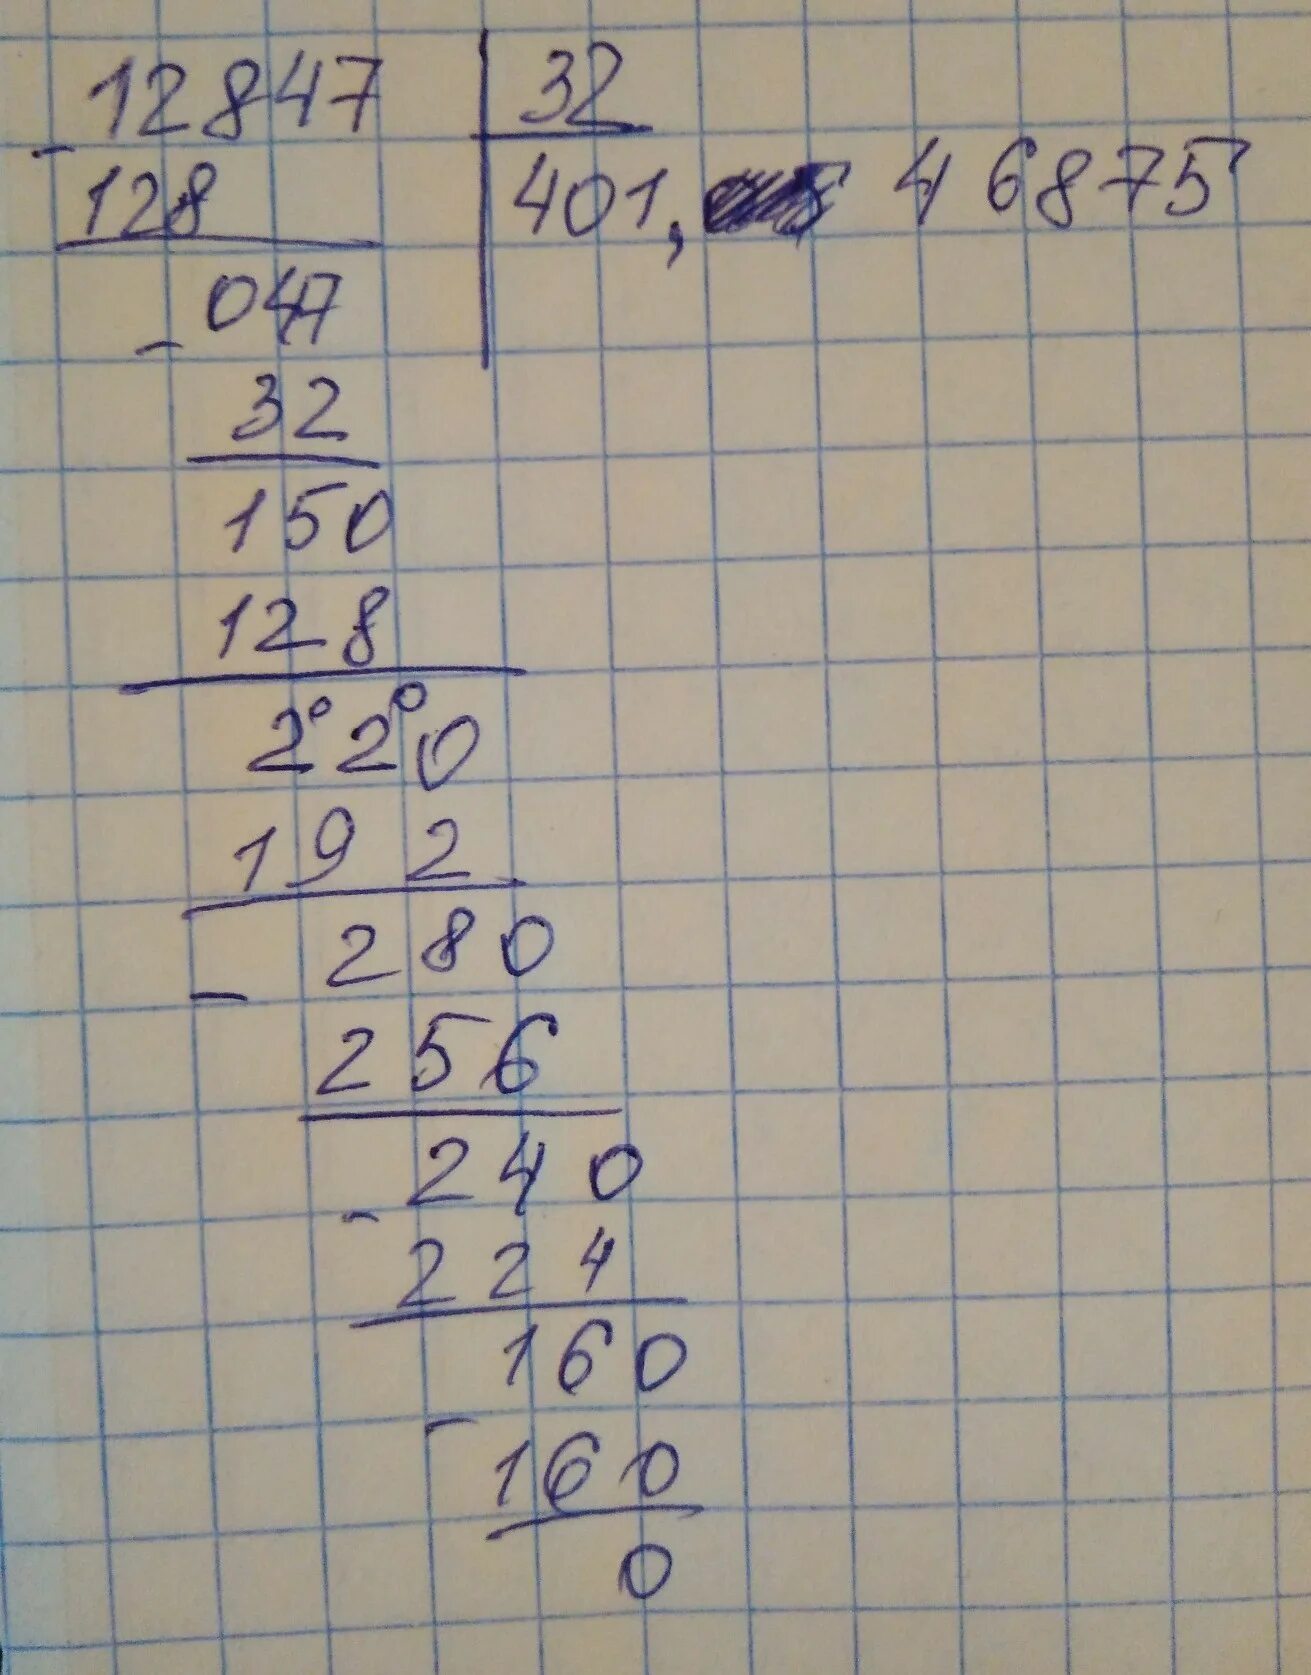 12847 32
- 128 401, 46875
047
- 32
150
128
220
192
280
- 256
240
- 224
160
- 160
0